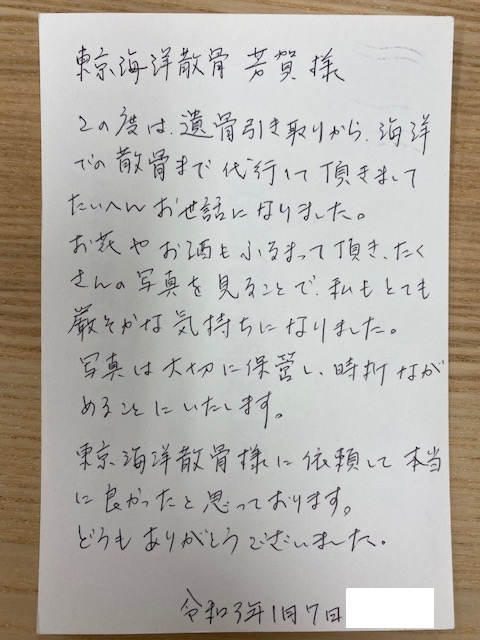 東京海洋散骨 芳賀様
この度は、遺骨引き取りから、海洋
での散骨まで代行して頂きまして
たいへんお世話になりました。
お花やお酒もふるまって頂き、たく
さんの写真を見ることで、私もとても
厳そかな気持ちになりました。
写真は大切に保管し、時折なが
めることにいたします。
東京海洋散骨様に依頼して本当
に良かったと思っております。
どうもありがとうございました。
令和3年1月7日